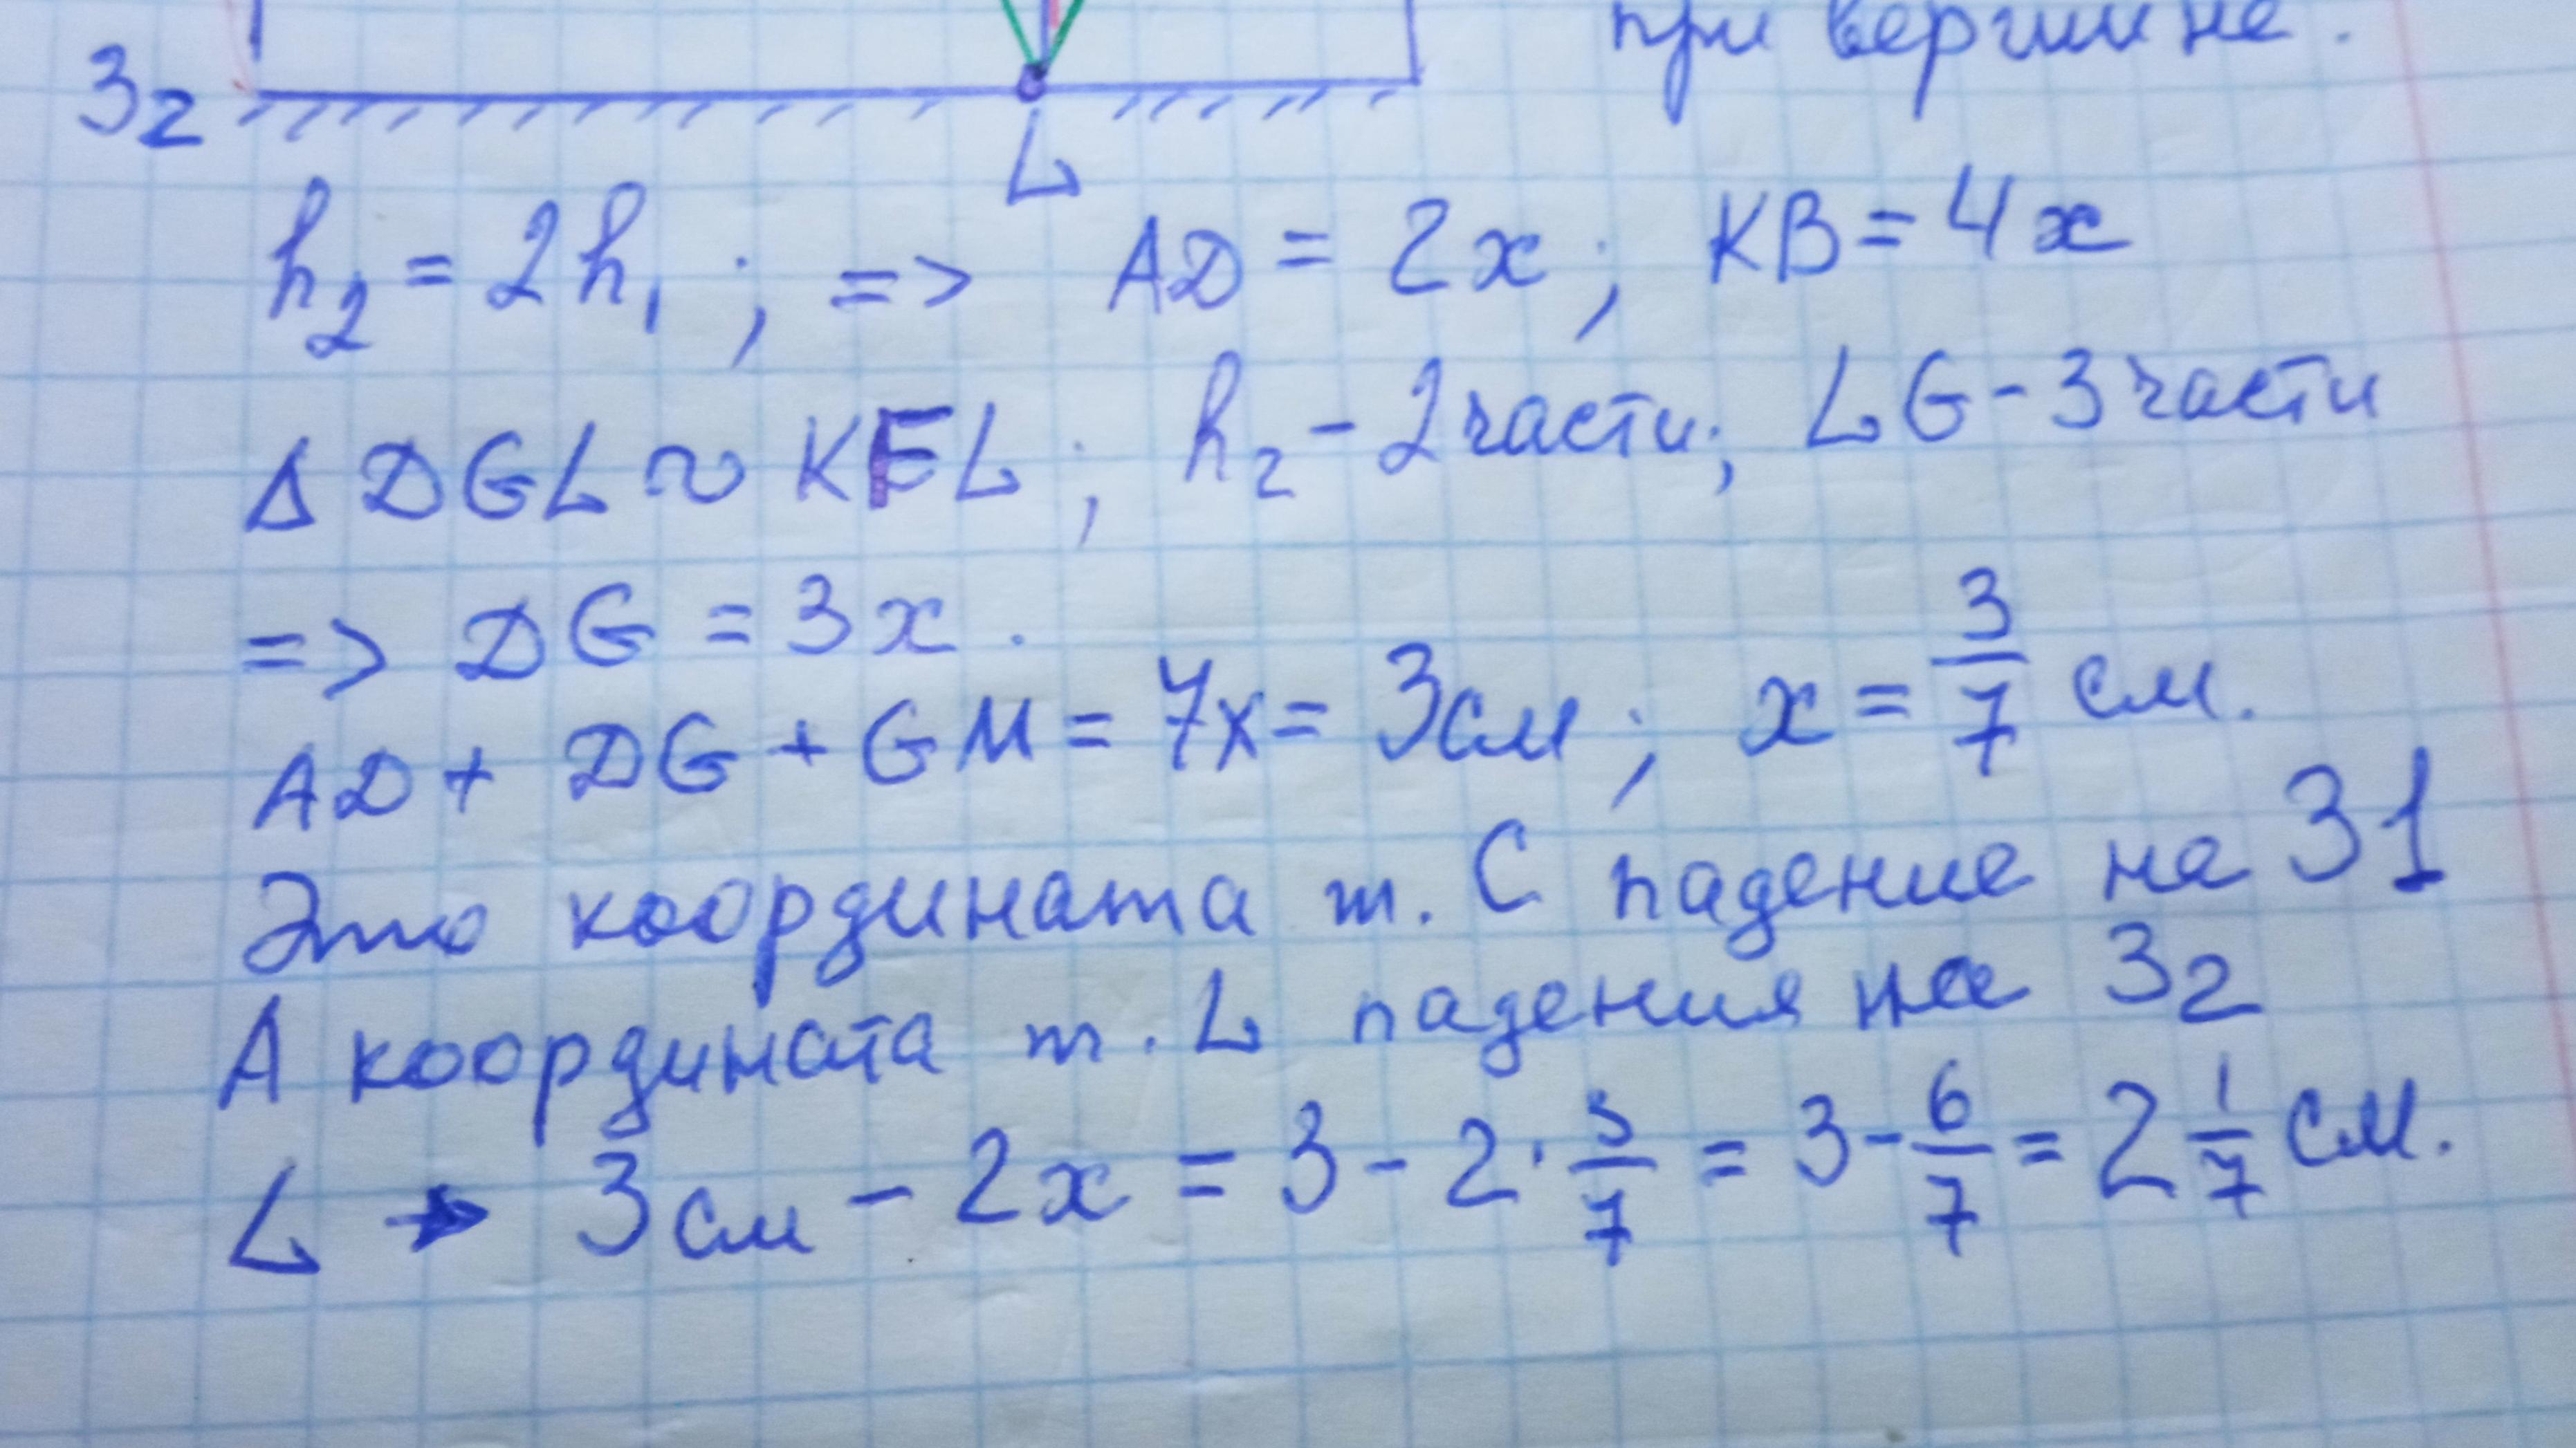 при вершине.
З2
L
h2 = 2h1 ; => AD = 2x ; KB = 4x
Δ DGL ~ KFL ; h2 - 2 части; LG - 3 части
=> DG = 3x .
AD + DG + GM = 7x = 3см ; x = 3/7 см.
Это координата т. C падение на З1
А координата т. L падения на З2
L → 3см - 2x = 3 - 2 · 3/7 = 3 - 6/7 = 2 1/7 см.